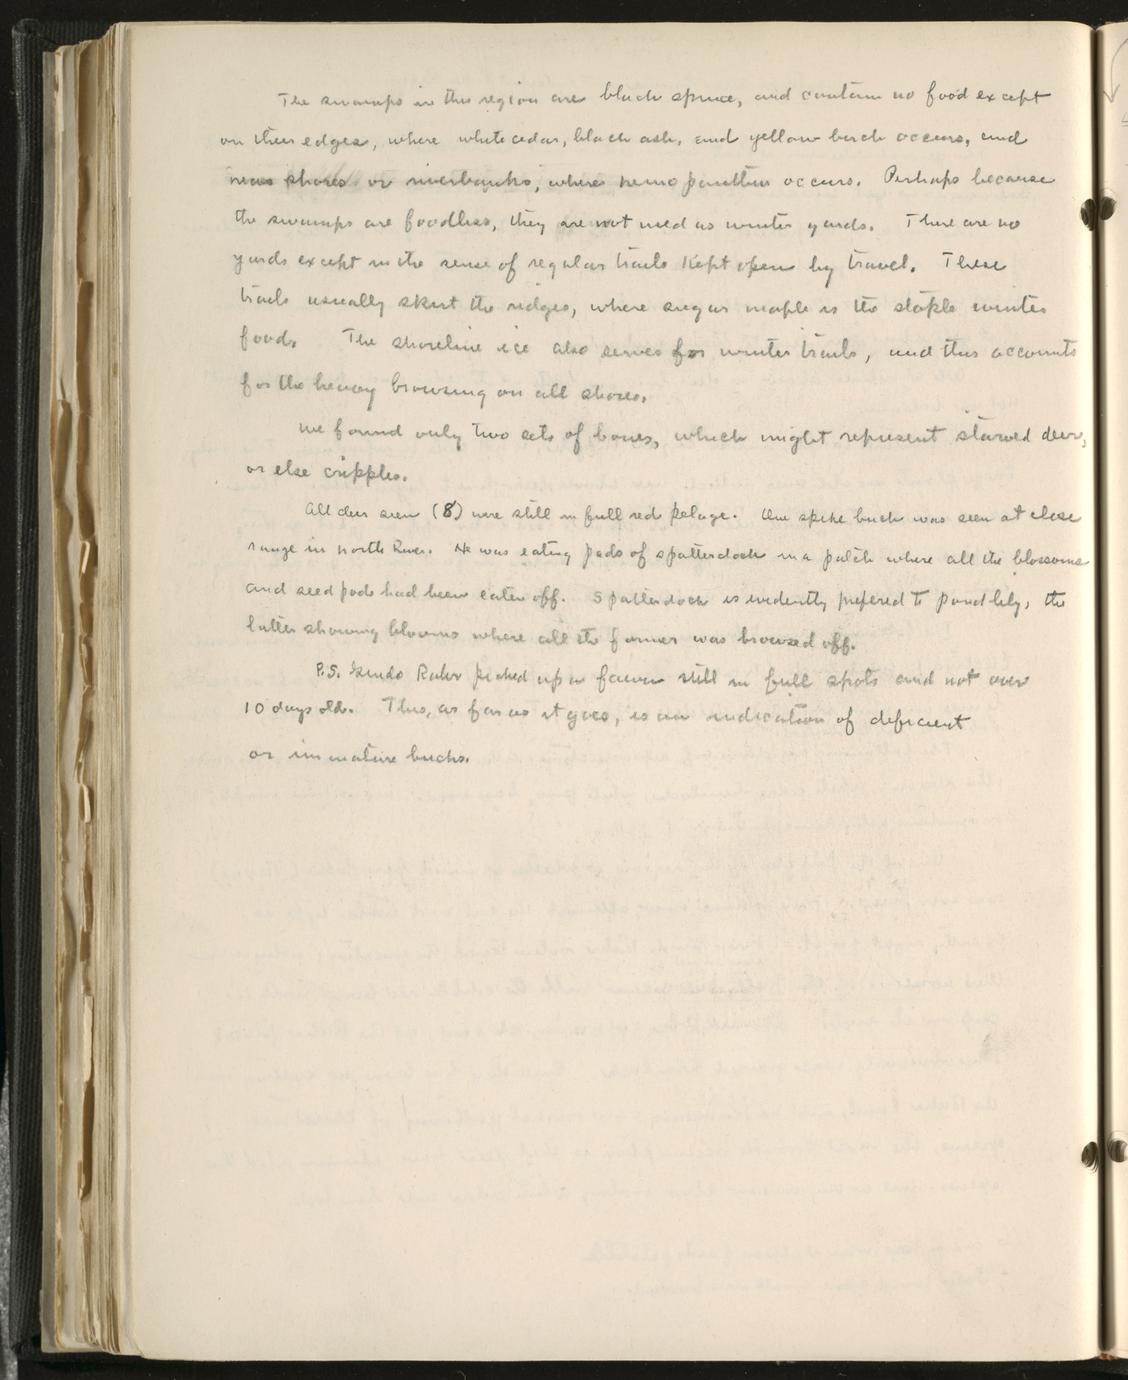 The swamps in this region are black spruce, and contain no food except
on their edges, where white cedar, black ash, and yellow birch occurs, and
near shores or riverbanks, where nemopanthus occurs. Perhaps because
the swamps are foodless, they are not used as winter yards. There are no
yards except in the sense of regular trails kept open by travel. These
trails usually skirt the ridges, where sugar maple is the staple winter
food. The shoreline ice also serves for winter trails, and this accounts
for the heavy browsing on all shores.
We found only two sets of bones, which might represent starved deer,
or else cripples.
All deer seen (8) were still in full red pelage. One spike buck was seen at close
range in North River. He was eating pads of spatterdock in a patch where all the blossoms
and seed pods had been eaten off. Spatterdock is evidently prefered to pond lily, the
latter showing blooms where all the former was browsed off.
P.S. Guido Rahr picked up a fawn still in full spots and not over
10 days old. This, as far as it goes, is an indication of deficient
or immature bucks.